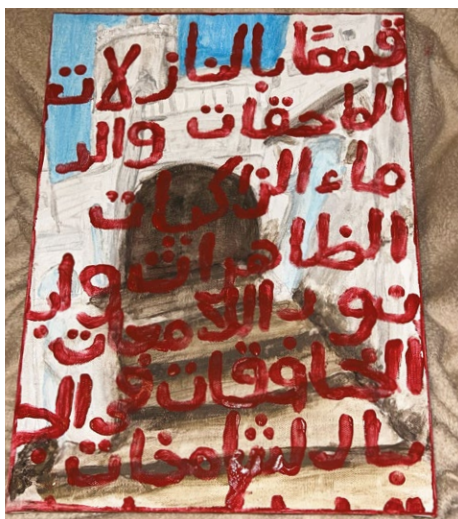 قسمًا بالنازلات
الماحقات والد
ماء الزاكيات
الطاهرات واب
نود اللامعات
الخافقات في الج
بال الشامخات